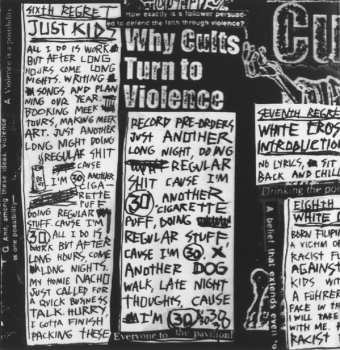 SIXTH REGRET
JUST KIDZ
ALL I DO IS WORK
BUT AFTER LONG
HOURS COME LONG
NIGHTS. WRITING
SONGS AND PLAN
MING OUR YEAR.
BOOKING MEEK
TOURS, MAKING MEEK
ART. JUST ANOTHER
LONG NIGHT DOING
REGULAR SHIT
CAUSE
I'M 30 ANOTHER
CIGA-
RETTE
PUFF
DOING REGULAR
STUFF. CAUSE I'M
30 ALL I DO IS
WORK BUT AFTER
LONG HOURS, COME
LONG NIGHTS.
MY HOMIE NACHO
JUST CALLED FOR
A QUICK BUSINESS
TALK. HURRY
I GOTTA FINISH
PACKING THESE
How exactly is a follower persuad-
ed to defend the faith through violence?
Why Cults
Turn to
Violence
RECORD PRE-ORDERS
JUST ANOTHER
LONG NIGHT, DOING
REGULAR
SHIT CAUSE I'M
30 ANOTHER
CIGARETTE
PUFF, DOING
REGULAR STUFF,
CAUSE I'M 30. X,
ANOTHER DOG
WALK, LATE NIGHT
THOUGHTS, CAUSE
I'M 30 30
Everyone to the pavilion!
A Violence is a possibility
Q And, among these ideas, violence
is one possibility
Cu
SEVENTH REGRE
WHITE EROS
INTRODUCTION
NO LYRICS, SIT
BACK AND CHILL
Drinking the po
A belief that extends even
EIGHTH
WHITE
BORN FILIPIN
A VICTIM OF
RACIST FU
AGAINST
KIDS WIT
A FÜHRER
FACE IN TH
WILL TAKE
WITH ME. F
RACIST